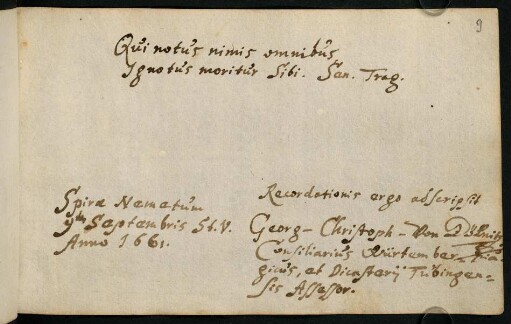 9
Qui notus nimis omnibus
Ignotus moritur sibi. Sen. Trag.
Spiræ Nemetum
9 Septembris St. V.
Anno 1661.
Recordationis ergo adscripsit
Georg-Christoph-Von
Consiliarius Würtember-
gicus, et Dicasterij Tübingen-
sis Assessor.